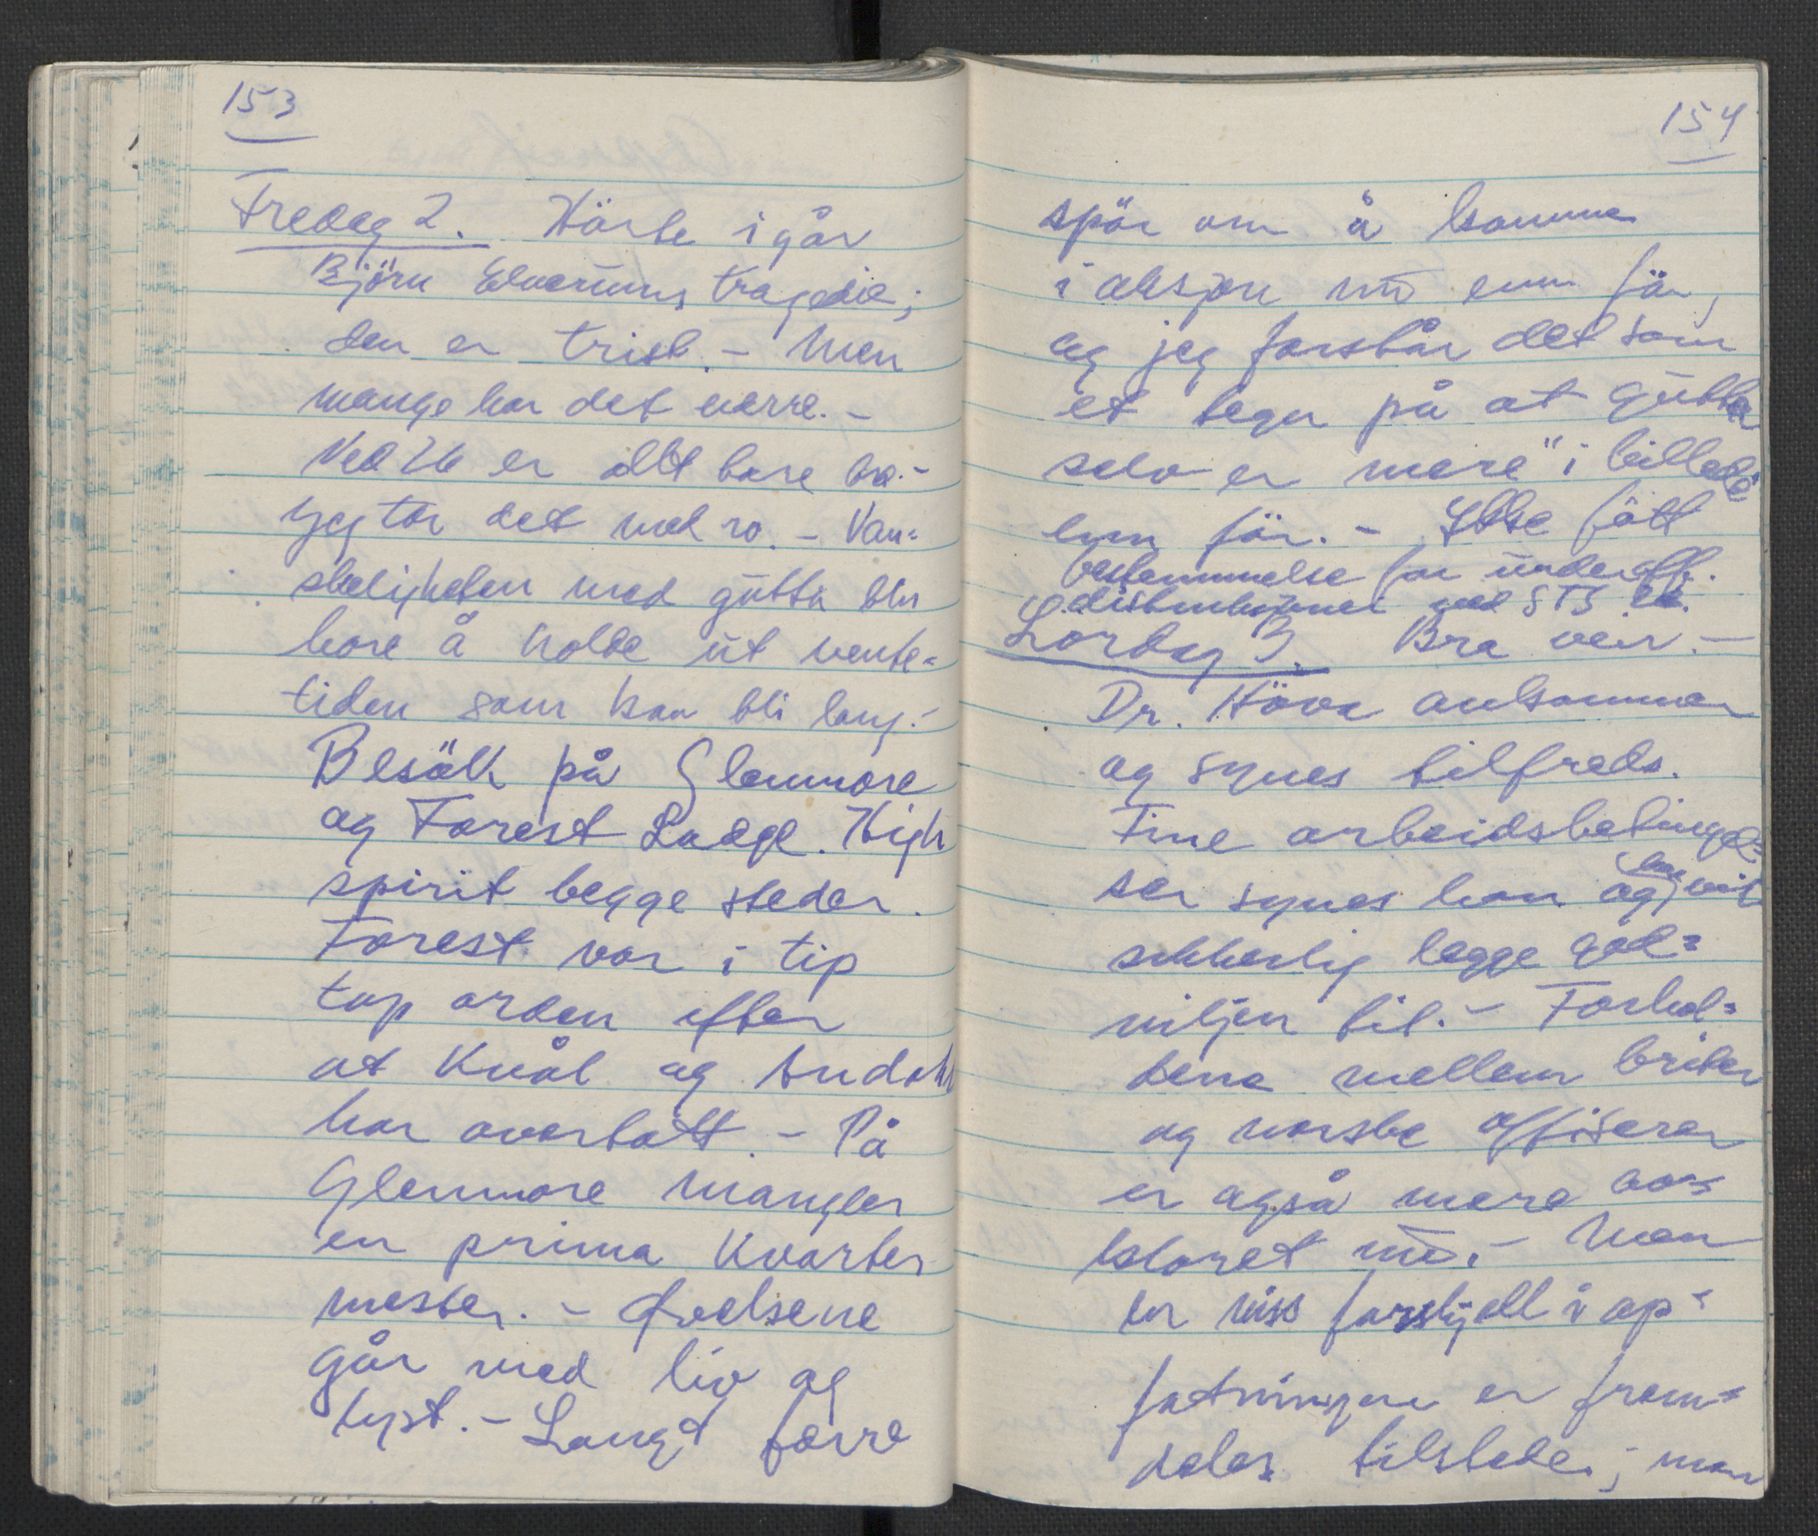 153
Fredag 2. Hörte i går
Björn Elverums tragedie;
den er trist. - Men
mange har det verre. -
Ved 26 er alt bare bra. -
Jeg tar det med ro. - Van=
skeligheten med gutta blir
bare å holde ut vente=
tiden som kan bli lang. -
Besök på Glenmore
og Forest Lodge. High
spirit begge steder.
Forest var i tip
top orden efter
at Kvål og
har overtatt. - På
Glenmore mangler
en prima Kvarter
mester. - Øvelsene
går med liv og
lyst. - Langt færre
154
spör om å komme
i aksjon nu enn för,
og jeg forstår det som
et tegn på at gutta
selv er mere "i billedet
enn för. - Ikke fått
bestemmelse for underoff.
distinksjoner ved STS
Lördag 3. Bra veir. -
Dr. Höve ankommer
og synes tilfreds.
Fine arbeidsbetingel=
ser synes han og han vil
sikkerlig legge god=
viljen til. - Forhol=
dene mellem briter
og norske offiserer
er også mere av=
klaret nu. - Men
en viss forskjell i op=
fatningen er frem=
deles tilstede; men